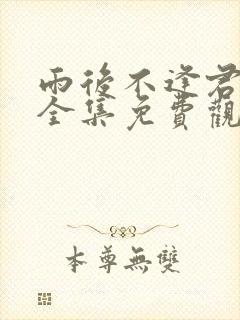 雨後不逢君
全集免費觀
本尊無雙